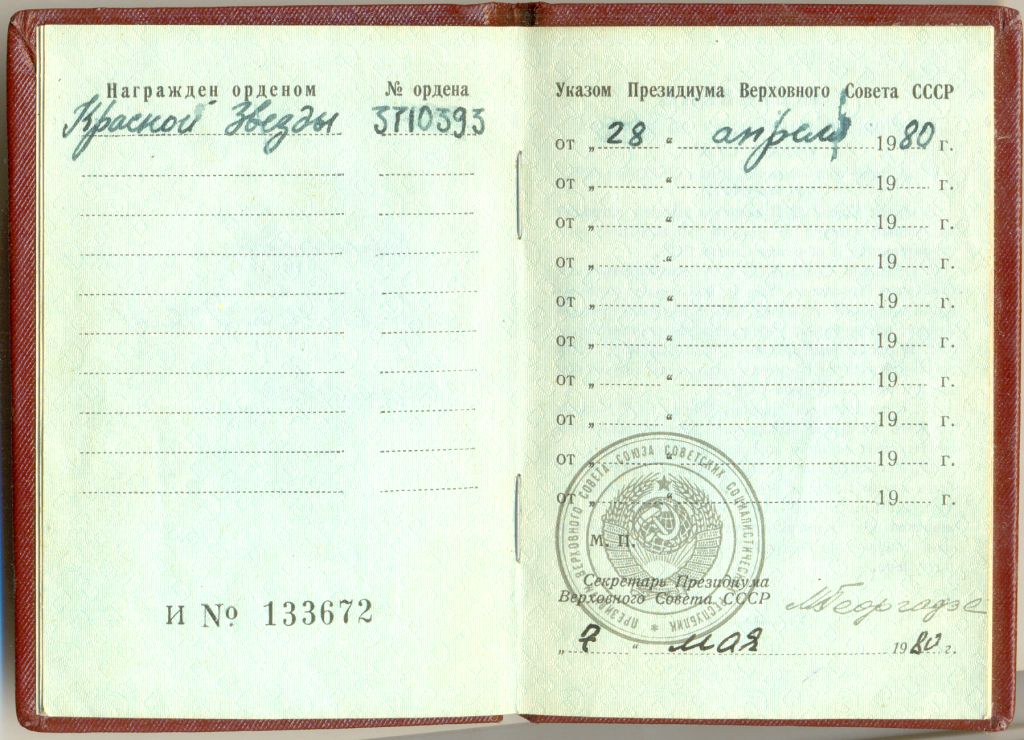 Награжден орденом
№ ордена
Красной Звезды
3710393
И № 133672
Указом Президиума Верховного Совета СССР
от „ 28 “ апреля 1980 г.
от „ “ 19 г.
от „ “ 19 г.
от „ “ 19 г.
от „ “ 19 г.
от „ “ 19 г.
от „ “ 19 г.
от „ “ 19 г.
от „ “ 19 г.
от „ “ 19 г.
ПРЕЗИДИУМ ВЕРХОВНОГО СОВЕТА СОЮЗА СОВЕТСКИХ СОЦИАЛИСТИЧЕСКИХ РЕСПУБЛИК *
М. П.
Секретарь Президиума
Верховного Совета СССР
МГеоргадзе
„ 7 “ мая 1980 г.